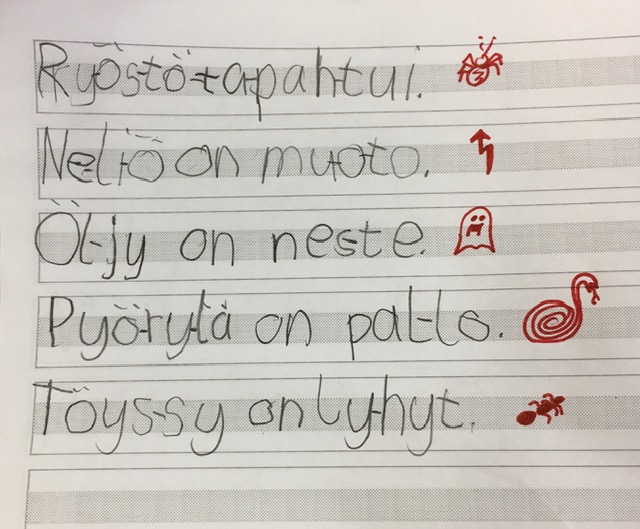 Ryöstö tapahtui.
Neliö on muoto.
Öljy on neste.
Pyörylä on pallo.
Töyssy on lyhyt.